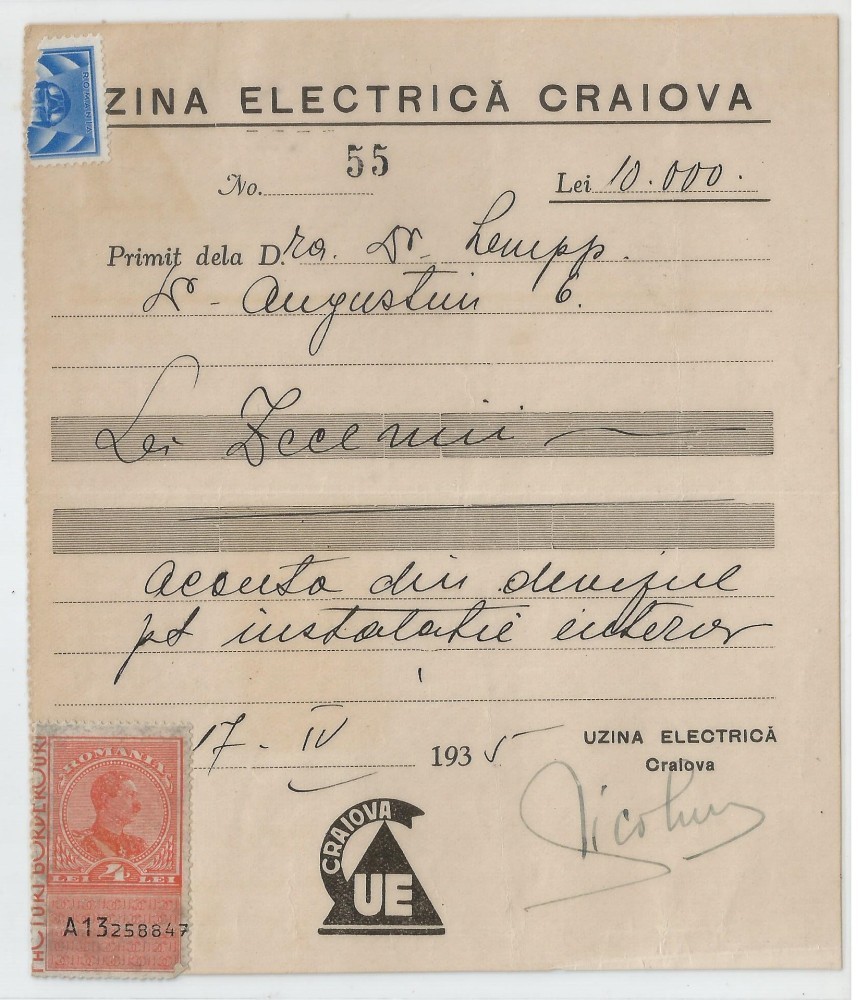 ROMANIA
ZINA ELECTRICĂ CRAIOVA
No. 55
Lei 10.000.
Primit dela D.ra. Dr. Lempp.
Dr - Augustin 6.
Lei Zece mii
Aconto din devizul
pt instalatie interior
17 - IV 1935
UZINA ELECTRICĂ
Craiova
ROMANIA
4
LEI LEI
A13258847
FACTURI BORDEROURI
CRAIOVA
UE